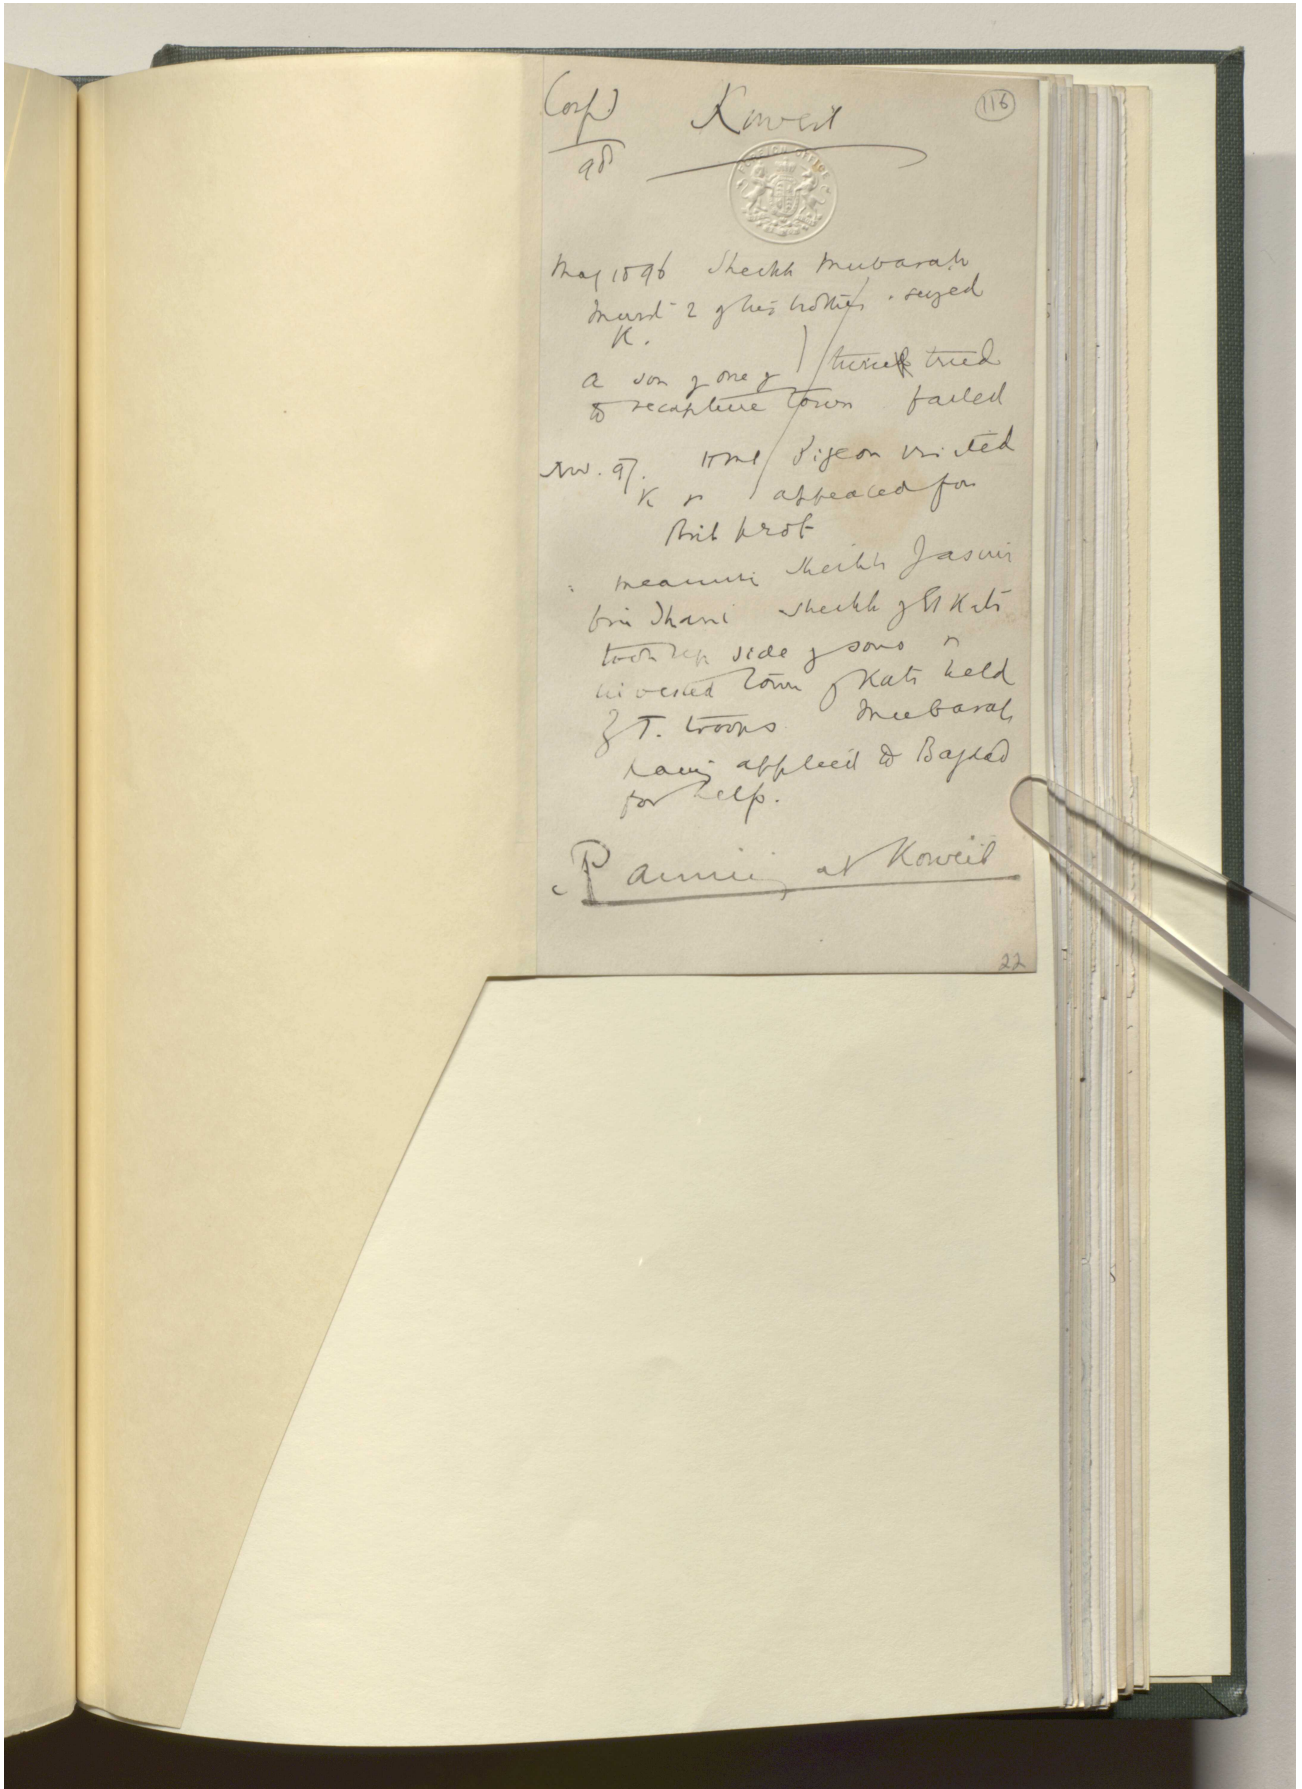 Conf)
98
Koweit
116
FOREIGN OFFICE
May 1896 Sheikh Mubarak
murd 2 of his brothers . seized
K.
a son of one of tried
to recapture town failed
Nov. 97. HMS Pigeon visited
K appealed for
Brit prot
Sheikh Jasim
bin Thani Sheikh of El Katr
took up side of sons
invested town of Katr held
by T. troops Mubarak
having applied to Bagdad
for help.
arming at Koweit
22